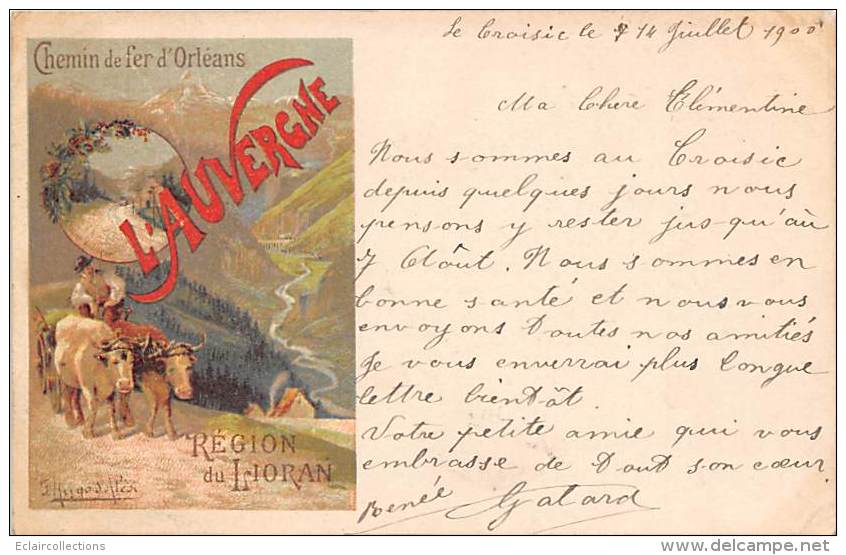 Chemin de fer d'Orléans
L'AUVERGNE
RÉGION
du LIORAN
F. Hugo d'Alési
Le Croisic le 14 Juillet 1900
Ma Chère Clémentine
Nous sommes au Croisic
depuis quelques jours nous
pensons y rester jus-qu'àu
7 Août. Nous sommes en
bonne santé et nous vous
envoyons Toutes nos amitiés
Je vous enverrai plus longue
lettre bientôt
Votre petite amie qui vous
embrasse de Tout son cœur
Renée Gatard
Eclaircollections
DELCAMPE.NET